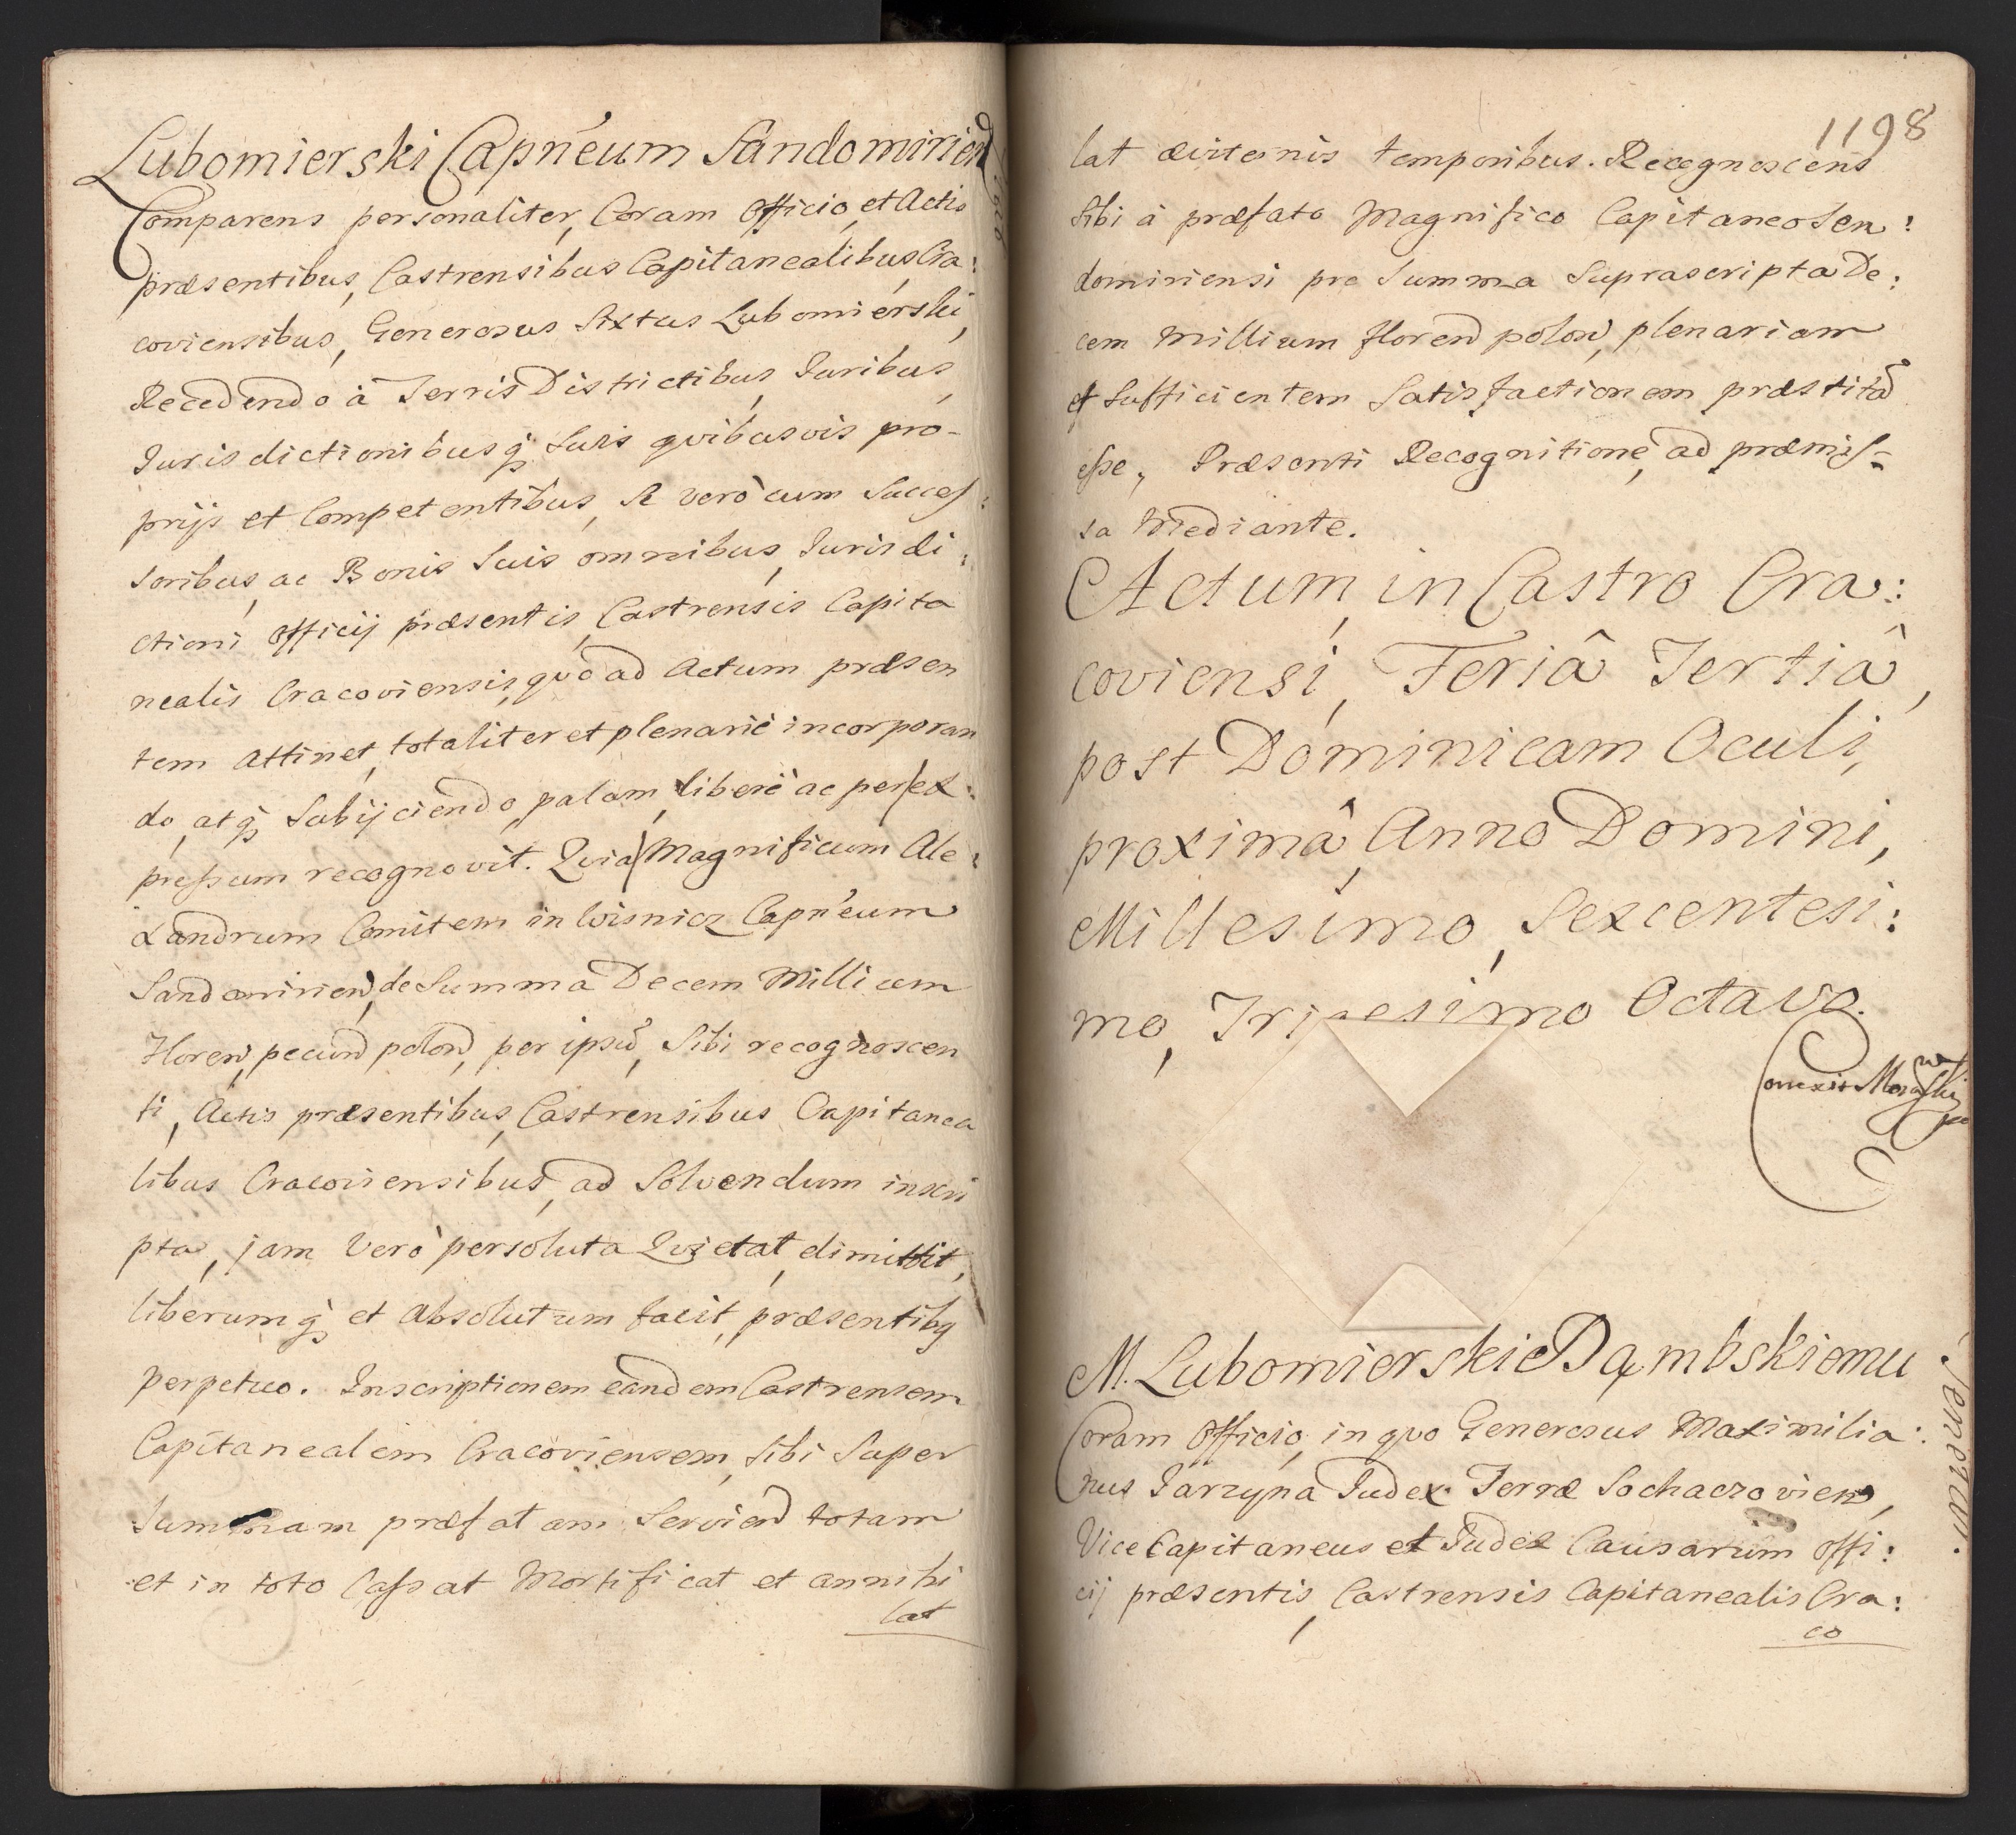 Lubomierski Capn̄eum Sandomirien
Comparens personaliter, Coram Officio, et Actis
præsentibus, Castrensibus Capitanealibus Cra:
coviensibus, Generosus Sixtus Lubomierski,
Recedendo à Terris Districtibus, Iuribus,
Iurisdictionibusq3 Suis qvibusvis pro-
prijs et Competentibus, Se verò cum Succes:
soribus, ac Bonis Suis omnibus, Iurisdi:
ctioni Officij præsentis, Castrensis Capita
nealis Cracoviensis, qvo ad Actum præsen
tem attinet, totaliter et plenariè incorporan
do, atq3 Subijciendo, palam, liberè ac per ex:
pressum recognovit. Qvia Magnificum Ale:
xandrum Comitem in Wisnicz Capn̄eum
Sandomirien, de Summa Decem Millium
Floren, pecun polon, per ipsū, Sibi recognoscen
ti, Actis præsentibus, Castrensibus Capitanea
libus Cracoviensibus, ad Solvendum inscri
pta, jam verò persoluta Qvietat, dimittit,
liberumq3 et absolutum facit, præsentibq
perpetuo. Inscriptionem eandem Castrensem
Capitanealem Cracoviensem, Sibi Super
Summam præfatam Servien totam
et in toto Cassat Mortificat et annihi
lat
1198
lat æviternis temporibus. Recognoscens
Sibi à præfato Magnifico Capitaneo Sen:
domiriensi pro Summa Suprascripta De:
cem Millium floren polon, plenariam
et Sufficientem Satisfactionem præstitā
esse, Præsenti Recognitione, ad præmis-
sa Mediante.
Actum, in Castro Cra:
coviensi, Feriâ Tertiâ,
post Dominicam Oculi,
proximâ, Anno Domini,
Millesimo, Sexcentesi:
mo, Trigesimo Octavo.
Conexit
M. Lubomierski Dąmbskiemu
Coram Officio, in qvo Generosus Maximilia:
nus Jarzyna Iudex Terræ Sochaczovien,
Vice Capitaneus et Iudex Causarum Offi:
cij præsentis, Castrensis Capitanealis Cra:
co